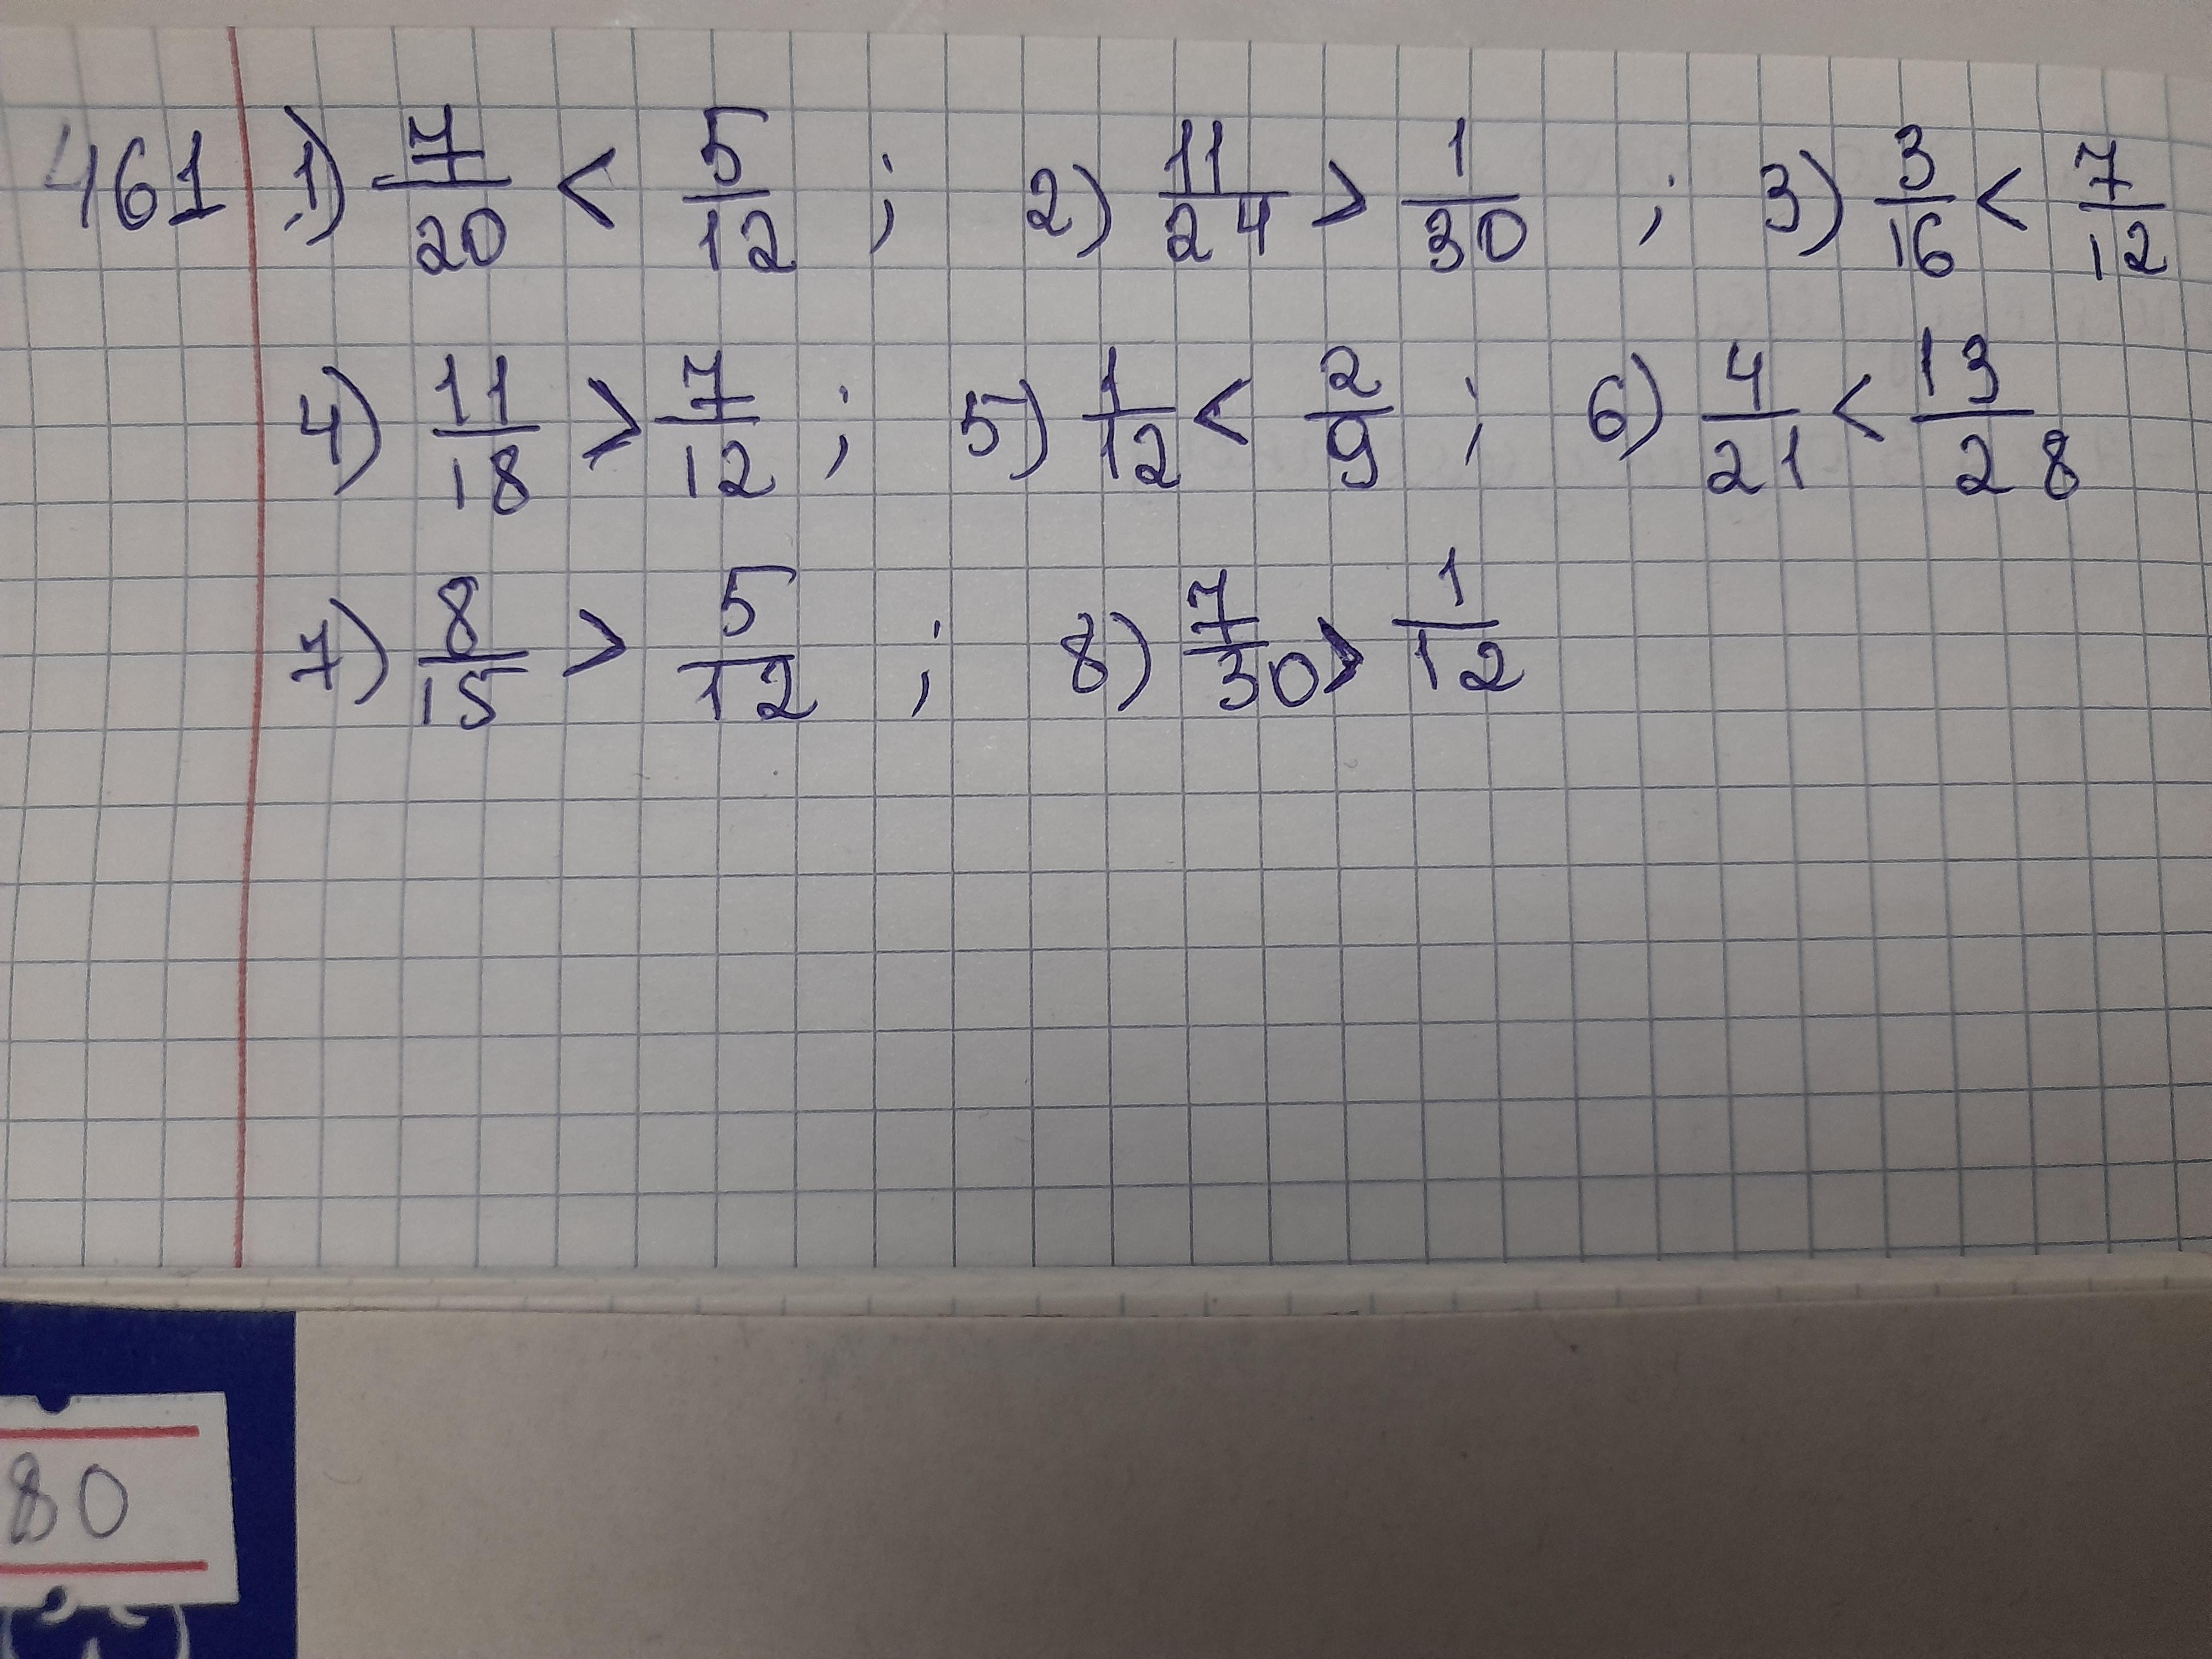 461 1) 7/20 < 5/12 ; 2) 11/24 > 1/30 ; 3) 3/16 < 7/12
4) 11/18 > 7/12 ; 5) 1/12 < 2/9 ; 6) 4/21 < 13/28
7) 8/15 > 5/12 ; 8) 7/30 > 1/12
80